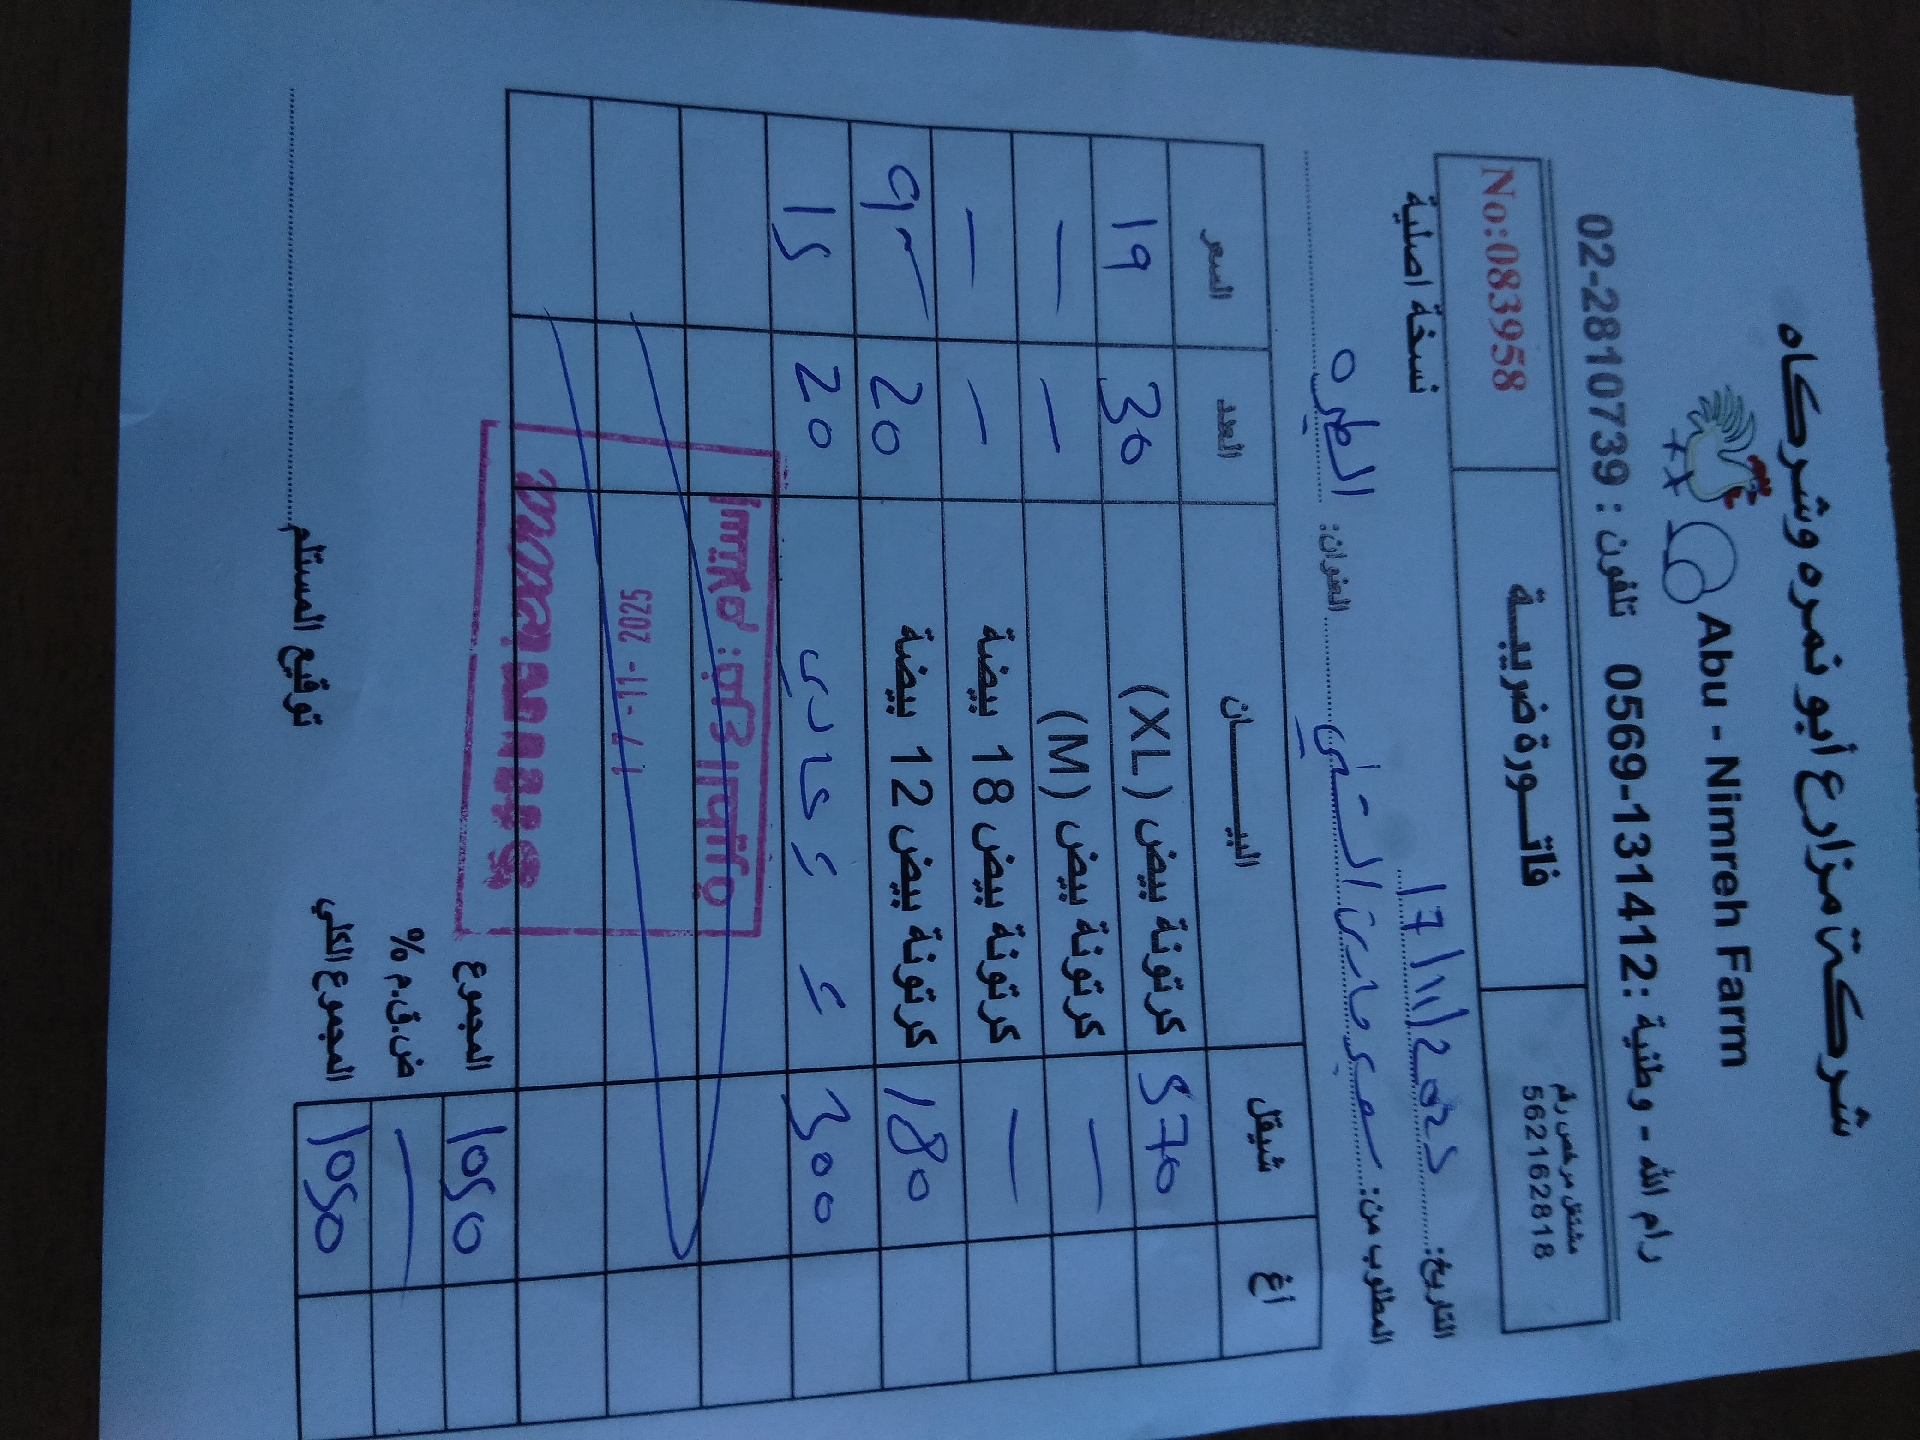 شركة مزارع أبو نمره وشركاه
Abu - Nimreh Farm
رام الله - وطنية : 0569-131412 تلفون : 02-2810739
مشتغل مرخص رقم 562162818
فاتورة ضريبية
No:083958
نسخة اصلية
التاريخ: 17/11/2025
المطلوب من: العنوان: الطيره
أغ شيقل البيان العدد السعر
570 كرتونة بيض (XL) 30 19
— كرتونة بيض (M) — —
— كرتونة بيض 18 بيضة — —
180 كرتونة بيض 12 بيضة 20 9
300 عادي 20 15
17 -11- 2025
المجموع 1050
ض.ق.م % —
المجموع الكلي 1050
توقيع المستلم